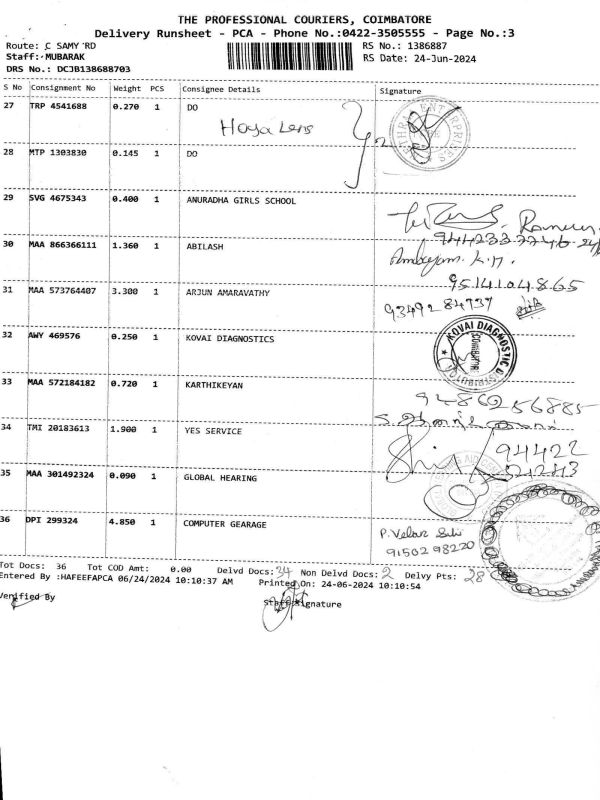 THE PROFESSIONAL COURIERS, COIMBATORE
Delivery Runsheet - PCA - Phone No.:0422-3505555 - Page No.:3
Route: C SAMY RD
RS No.: 1386887
Staff: MUBARAK
RS Date: 24-Jun-2024
DRS No.: DCJB138688703
S No Consignment No Weight PCS Consignee Details Signature
27 TRP 4541688 0.270 1 DO
Hoya Lens
28 MTP 1303830 0.145 1 DO
29 SVG 4675343 0.400 1 ANURADHA GIRLS SCHOOL
30 MAA 866366111 1.360 1 ABILASH
31 MAA 573764407 3.300 1 ARJUN AMARAVATHY
9514104865
9349284737
32 AWY 469576 0.250 1 KOVAI DIAGNOSTICS
KOVAI DIAGNOSTIC
COIMBATORE
33 MAA 572184182 0.720 1 KARTHIKEYAN
9486256885
34 TMI 20183613 1.900 1 YES SERVICE
94422
35 MAA 301492324 0.090 1 GLOBAL HEARING
36 DPI 299324 4.850 1 COMPUTER GEARAGE
P. Velar
91502 98220
Tot Docs: 36 Tot COD Amt: 0.00 Delvd Docs: 34 Non Delvd Docs: 2 Delvy Pts: 28
Entered By :HAFEEFAPCA 06/24/2024 10:10:37 AM Printed On: 24-06-2024 10:10:54
Verified By Staff Signature